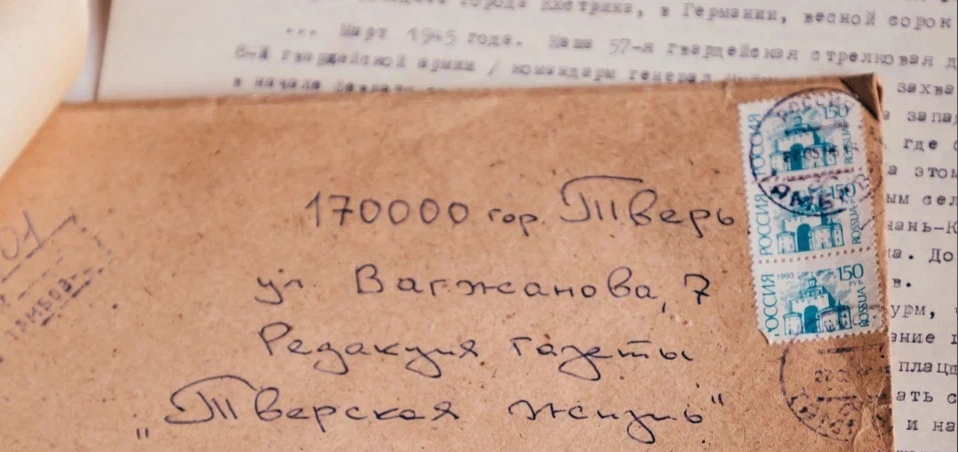 города Кюстрина, в Германии, весной сорок
... Март 1945 года. Наша 57-я гвардейская стрелковая д
8-й гвардейской армии / командарм генерал
захва
в начале
запа
где
этом
170000 гор. Тверь
ул Вагжанова, 7
Редакция газеты
„Тверская жизнь"
РОССИЯ 150 ROSSIJA
РОССИЯ 150 ROSSIJA
РОССИЯ 1993 150 ROSSIJA
ым сел
ань-К
а. До
в.
урм,
ание
плац
ать с
и на